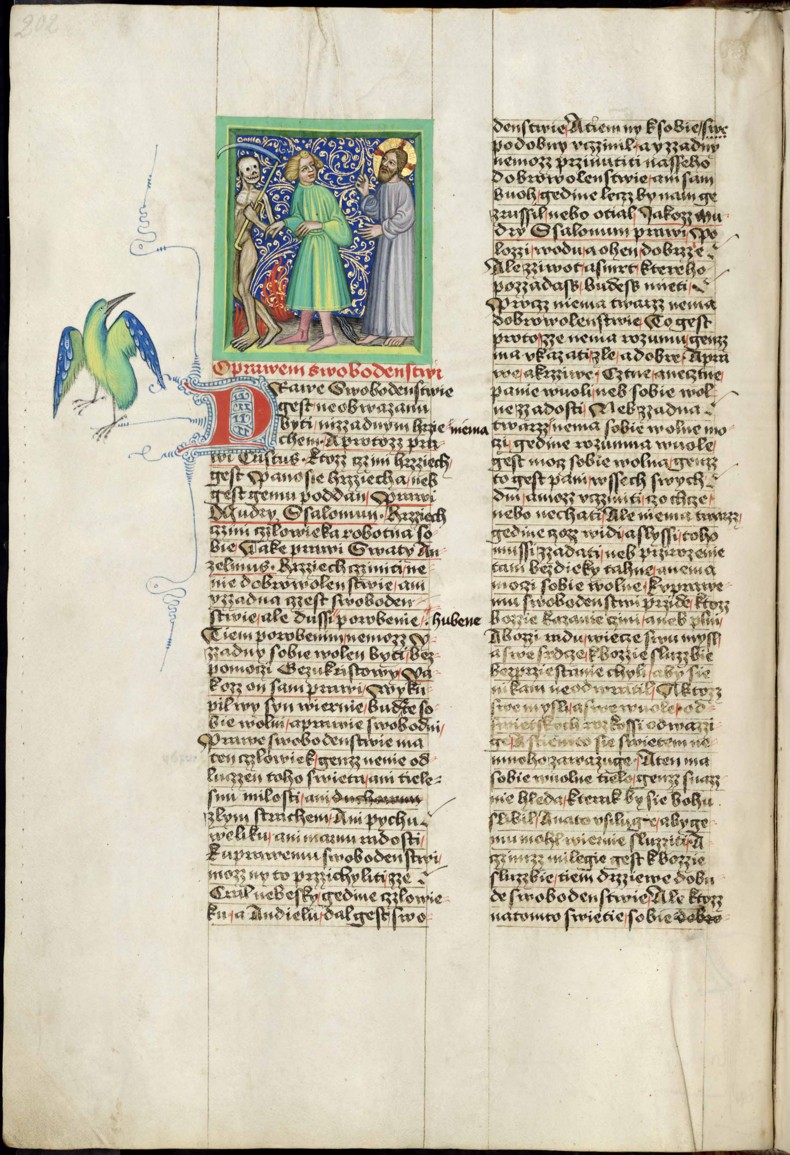 202
O prawem Swobodenstwi
Prawe Swobodenstwie
gest neobwazanu
byti nizzadnym hrzie
nema
chem. A protozz pra
wi Tustus. Ktozz czini hrziech
gest Pano sie hrziecha, neb
gest gemu poddan, Prawi
Mudry Ssalomun. Hrziech
czini czlowieka robotna so
bie Take prawi Swaty An
zelmus. Hrziech cziniti ne
nie dobrowolenstwie, ani
yzzadna czest swoboden
stwie, ale dussi porobenie,
hubene
Tiem porobenim nemozz y
zzadny sobie wolen byti bez
pomoczi Gezukristowy, Ya
kozz on sam prawi, Wyku
pil wy syn wiernie, budte so
bie wolni, a prawie swobodni,
Prawe swobodenstwie ma
ten czlowiek, genzz nenie od
luczen toho swieta, ani tiele
sni milosti, ani
zlym strachem, Ani pychu
weliku, ani marnu radosti,
Ku prawemu swobodenstwi,
mozz ny to przichyliti, zze
Cral nebesky gedine czlowie
ku, a Andielu, dal gest swo
denstwie, A tiem ny k sobie, swe
podobny vczinil, a yzzadny
nemozz przinutiti nasseho
dobrowolenstwie, ani sam
buoh, gedine lecz by nam ge
zrussil nebo otial, Jakozz mu
dry Ssalomun prawi, Po
lozzi, wodu, a ohen, dobrzze
Ale zziwot, a smrt, ktereho
pozzadass, budess mieti,
Procz niema twarz nema
dobrowolenstwie, To gest
proto, zze nema rozumu, genz
ma vkazati, zle, a dobre, A pra
we, a krziwe, Cztne, a necztne,
panie wuoli, neb sobie wol
ne zzadosti, Neb zzadna
twarz, nema sobie wolne mo
czi, gedine rozumna wuole,
gest mocz sobie wolna, genz
to gest pani, wssech swych
dni, a mozz vcziniti, czo chcze,
nebo nechati, Ale niema twarz,
gedine czoz widi, a slyssi, toho
mussi zzadati, neb przirozenie
tam bezdieky tahne, a nema
moczi sobie wolne, K prawe
mu swobodenstwi przide, ktozz
bozzie kazanie czini, a neb plni,
A bozzi radu, wiecze swu mysl
a swe srdcze, k bozzie sluzzbie
bezprziestanie chyli, aby sie
nikam neodwratil, A ktozz
swe mysli, a swe wuole, od
swietskych rozkossi odwazzi
ge, A s tiemto sie swietem ne
mnoho zawazuge, A ten ma
sobie wuolne tielo, genz snazz
nie hleda, kterak by sie bohu
slibil, A na to vsiluge, aby ge
mu mohl wiernie sluziti, A
czimzz milegie gest k bozzie
sluzzbie, tiem drzziewe dobu
de swobodenstwie, Ale ktozz
na tomto swietie, sobie dobro